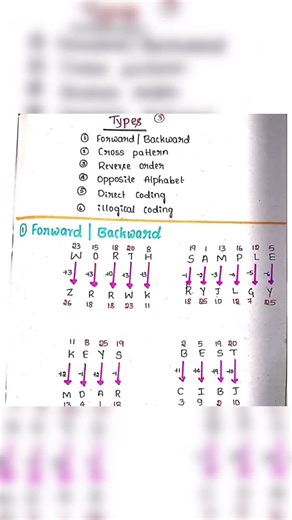 Types ③
① Forward | Backward
② Cross pattern
③ Reverse order
④ Opposite Alphabet
⑤ Direct Coding
⑥ illogical coding
① Forward | Backward
23 15 18 20 8
W O R T H
+3 +3 +0 +3 +3
Z R R W K
26 18 18 23 11
19 1 13 16 12 5
S A M P L E
-1 -2 -3 -4 -5 -6
R Y J L G Y
18 25 10 12 7 25
11 8 25 19
K E Y S
+2 -1 +2 -1
M D A R
13 4 1 18
2 5 19 20
B E S T
C I B J
3 9 2 10